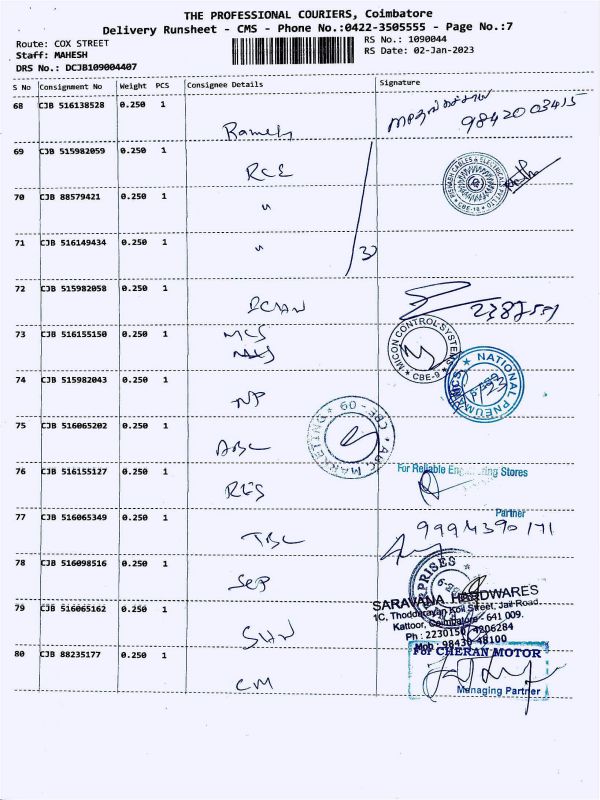 THE PROFESSIONAL COURIERS, Coimbatore
Delivery Runsheet - CMS - Phone No.:0422-3505555 - Page No.:7
Route: COX STREET
RS No.: 1090044
Staff: MAHESH
RS Date: 02-Jan-2023
DRS No.: DCJB109004407
S No Consignment No Weight PCS Consignee Details Signature
68 CJB 516138528 0.250 1 Ramesh 9842003415
69 CJB 515982059 0.250 1 RCE
70 CJB 88579421 0.250 1 "
71 CJB 516149434 0.250 1 "
72 CJB 515982058 0.250 1
73 CJB 516155150 0.250 1 MCS
MICON CONTROL SYSTEMS * CBE-9 *
74 CJB 515982043 0.250 1 NP
NATIONAL PNEUMATICS
75 CJB 516065202 0.250 1 ABC
ABC MARKETING * CBE - 09 *
76 CJB 516155127 0.250 1 RES
For Reliable Engineering Stores
Partner
77 CJB 516065349 0.250 1 TBC 9994390171
78 CJB 516098516 0.250 1 SEP
79 CJB 516065162 0.250 1 SHW
SARAVANA HARDWARES
1C, Thodurayan Koil Street, Jail Road,
Kattoor, Coimbatore - 641 009.
Ph : 2230150, 4206284
Mob : 98430 48100
80 CJB 88235177 0.250 1 CM
For CHERAN MOTOR
Managing Partner